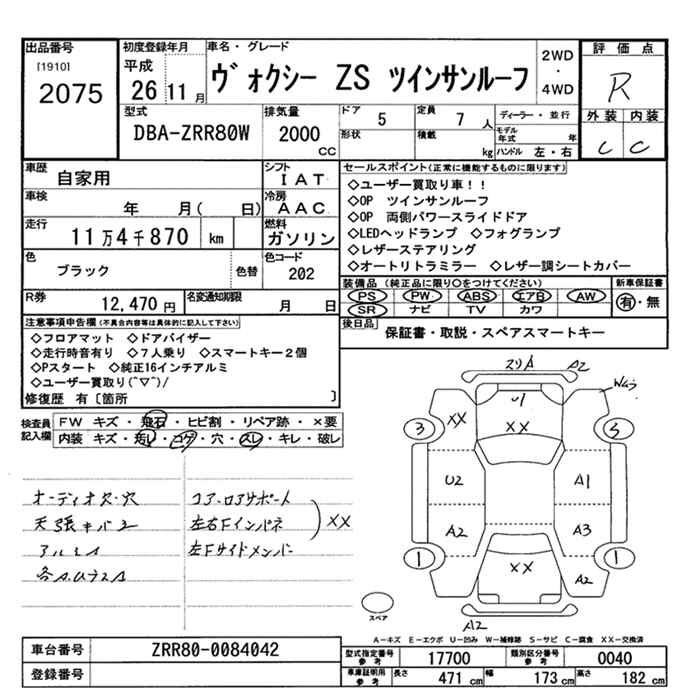 出品番号
[1910]
2075
初度登録年月
平成
26年11月
車名・グレード
ヴォクシー ZS ツインサンルーフ
2WD
・
4WD
評価点
R
外装 内装
C C
型式
DBA-ZRR80W
排気量
2000
CC
ドア
5
定員
7人
形状
積載
kg
ディーラー・並行
モデル年式 年
ハンドル 左・右
車歴
自家用
シフト
IAT
車検
年 月( 日)
冷房
AAC
走行
11万4千870 km
燃料
ガソリン
色
ブラック
色替
色コード
202
R券
12,470円
名変通知期限
月 日
セールスポイント(正常に機能するものに限ります)
◇ユーザー買取り車!!
◇OP ツインサンルーフ
◇OP 両側パワースライドドア
◇LEDヘッドランプ ◇フォグランプ
◇レザーステアリング
◇オートリトラミラー ◇レザー調シートカバー
装備品(純正品に限り〇をつけてください)
PS PW ABS エアB AW
SR ナビ TV カワ
新車保証書
有・無
後日品
保証書・取説・スペアスマートキー
注意事項申告欄(不具合内容等は具体的に記入して下さい)
◇フロアマット ◇ドアバイザー
◇走行時音有り ◇7人乗り ◇スマートキー2個
◇Pスタート ◇純正16インチアルミ
◇ユーザー買取り(^▽^)/
修復歴 有〔箇所 〕
検査員
記入欄
FW キズ・飛石・ヒビ割・リペア跡・×要
内装 キズ・汚レ・コゲ・穴・スレ・キレ・破レ
オーディオ欠・穴
天張キバミ
アルミA
各A.Uラス1
コア・ロアサポート
左右Fインパネ
左Fサイドメンバー
XX
A2
W
U1
XX
XX
3
5
U2
A1
A2
A3
1
1
XX
A2
A2
スペア
A-キズ E-エクボ U-凹み W-補修跡 S-サビ C-腐食 XX-交換済
車台番号
ZRR80-0084042
登録番号
型式指定番号
参考
17700
類別区分番号
参考
0040
車庫証明用
参考
長さ
471 cm
幅
173 cm
高さ
182 cm